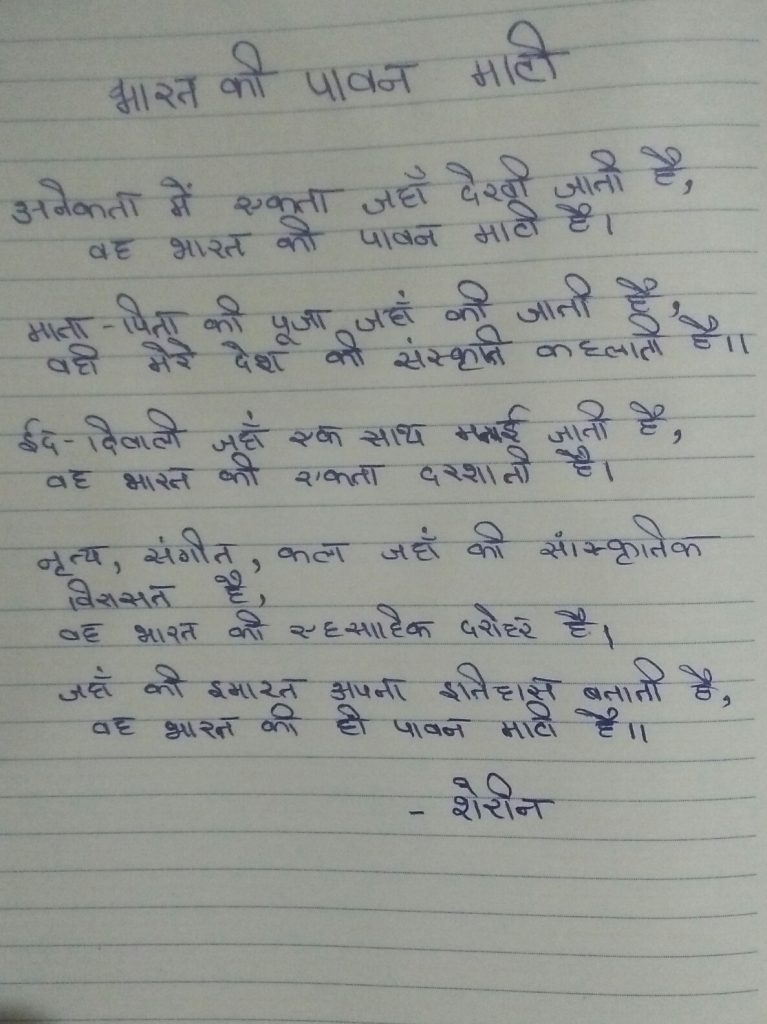 भारत की पावन माटी
अनेकता में एकता जहाँ देखी जाती है,
वह भारत की पावन माटी है।
माता-पिता की पूजा जहाँ की जाती है,
वही मेरे देश की संस्कृति कहलाती है॥
ईद-दिवाली जहाँ एक साथ मनाई जाती है,
वह भारत की एकता दरशाती है।
नृत्य, संगीत, कला जहाँ की सांस्कृतिक
विरासत है,
वह भारत की एहसाहिक दरोहर है।
जहाँ की इमारत अपना इतिहास बताती है,
वह भारत की ही पावन माटी है॥
- शेरीन